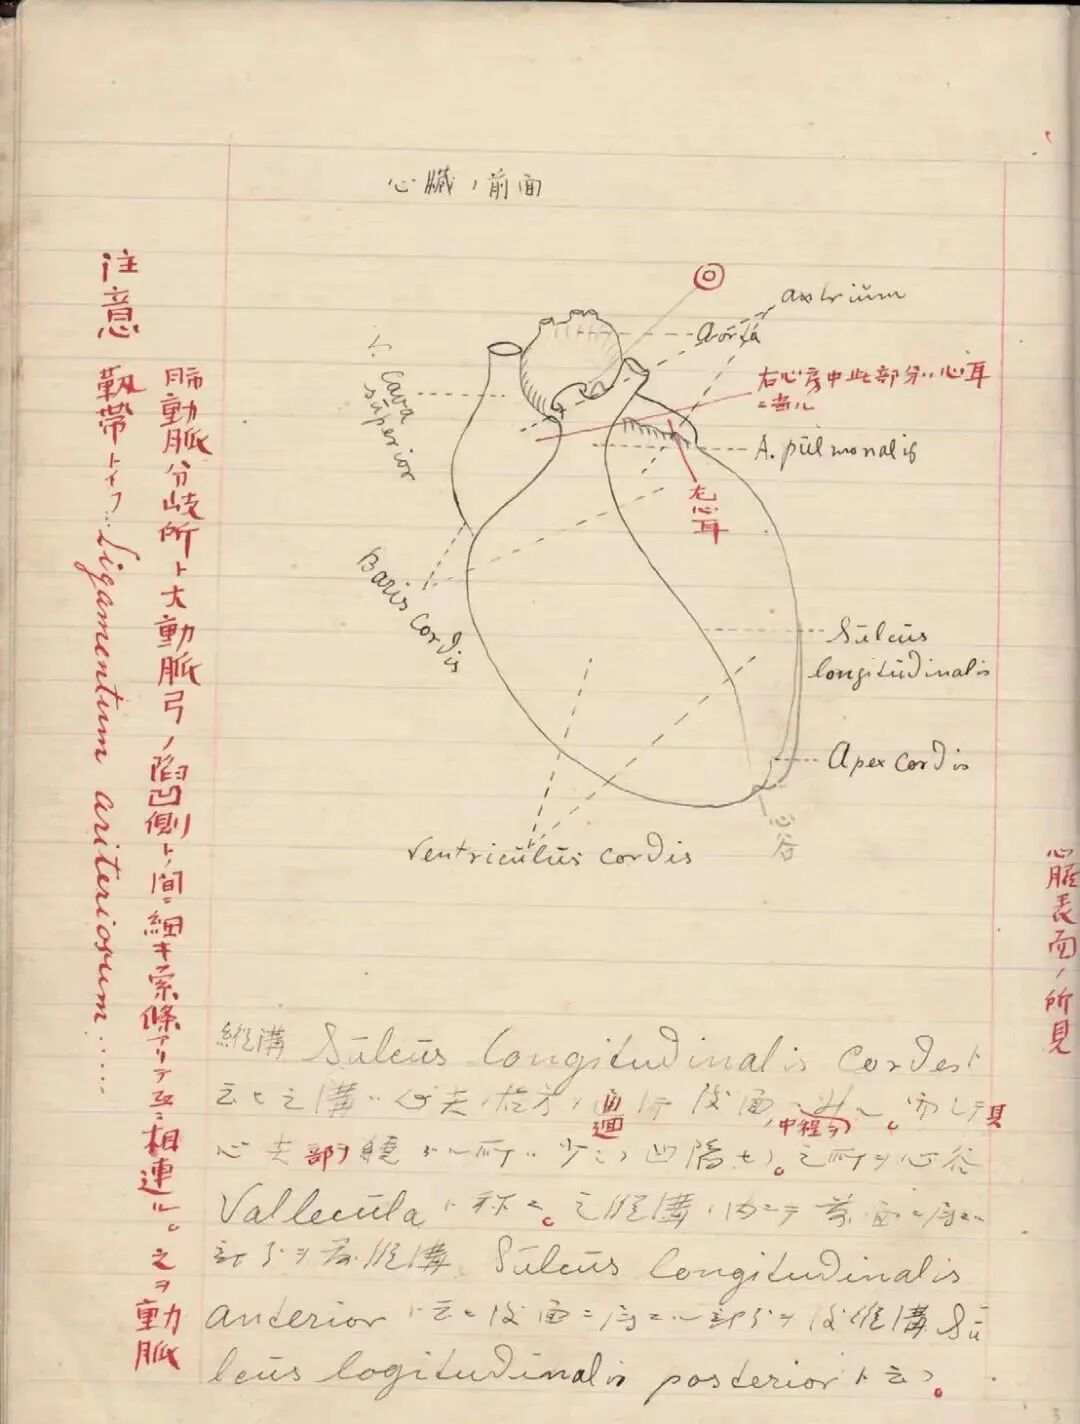 心臓ノ前面
axtrium
aorta
V. Cava
superior
右心房中此部分ハ心耳
ニ当ル
A. pūlmonalis
左心耳
Basis cordis
Sūlcūs
longitūdinalis
Apex cordis
心谷
Ventricūlūs cordis
注意
肺動脈分岐所ト大動脈弓ノ陷凹側トノ間ニ細キ索條アリテ互ニ相連ル。之ヲ動脈
靱帯ト云フ Ligamentum ariteriosum......
心臓表面ノ所見
縦溝 Sūlcūs longitūdinalis Cordis ト
云ヒ之溝ハ心尖ノ右方ノ通リテ後面
中程ヲ
心尖部ヲ繞 所ハ少シク凹陷セリ。之所ヲ心谷
Vallecūla ト称ス。之縦溝ノ内ニテ前面ニ存スル
部分ヲ前縦溝 Sūlcūs longitūdinalis
anterior ト云ヒ後面ニ存スル部分ヲ後縦溝 Sū
lcūs logitūdinalis posterior ト云フ。